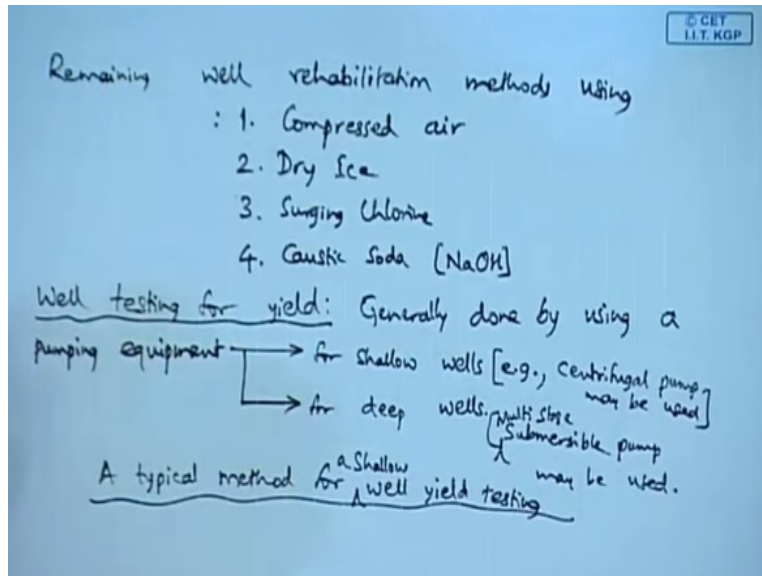 © CET
I.I.T. KGP
Remaining well rehabilitation methods using
: 1. Compressed air
2. Dry Ice
3. Surging Chlorine
4. Caustic Soda [NaOH]
Well testing for yield: Generally done by using a
pumping equipment → for shallow wells [e.g., Centrifugal pump
may be used]
→ for deep wells. Multi stage
[Submersible pump
may be used.
A typical method for a shallow well yield testing